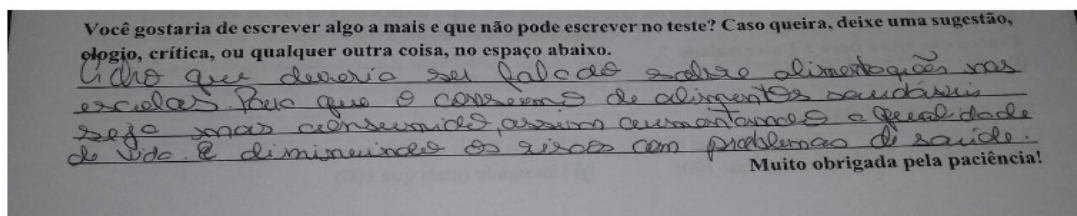 Você gostaria de escrever algo a mais e que não pode escrever no teste? Caso queira, deixe uma sugestão,
elogio, crítica, ou qualquer outra coisa, no espaço abaixo.
Acho que deveria ser falado sobre alimentações nas
escolas. Para que o consumo de alimentos saudáveis
seja mais consumido, assim aumentamos a qualidade
de vida. E diminuindo os riscos com problemas de saúde.
Muito obrigada pela paciência!